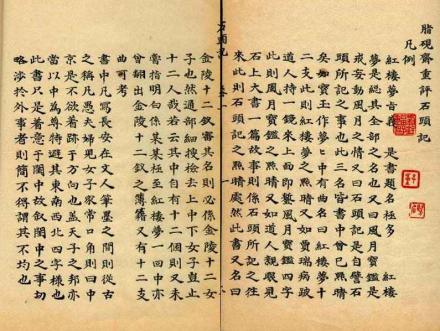 脂硯齋重評石頭記
凡例
紅樓夢旨義 是書題名極多 紅樓
夢是總其全部之名也又曰風月寶鑑是
戒妄動風月之情又曰石頭記是自譬石
頭所記之事也此三名皆書中曾已點睛
矣如寶玉作夢夢中有曲名曰紅樓夢十
二支此則紅樓夢之點睛又如賈瑞病跛
道人持一鏡來上面即鏨風月寶鑑又如道人親眼見
石上大書一篇故事則係石頭所記之往
來此則石頭記之點睛處然此書又名曰
金陵十二釵審其名則必係金陵十二女
子也然通部細搜檢去上中下女子豈止
十二人哉若云其中自有十二個則又未
嘗指明白係某某極至紅樓夢一回中亦
曾翻出金陵十二釵之簿籍又有十二支
曲可考
書中凡寫長安在文人筆墨之間則從古
之稱凡愚夫婦兒女子家常口角則曰中
京是不欲着跡于方向也蓋天子之邦亦
當以中為尊特避其東南西北四字樣也
此書只是着意于閨中故敘閨中之事切
略涉於外事者則簡不得謂其不均也